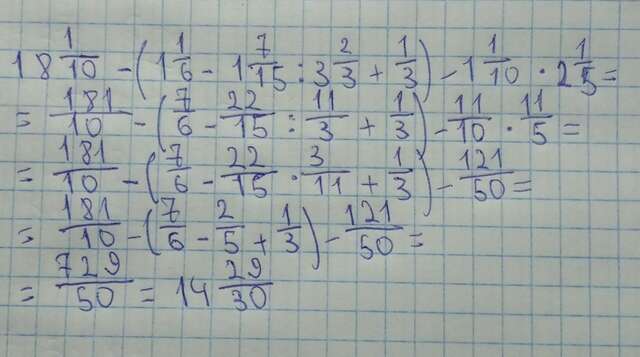 18 1/10 - (1 1/6 - 1 7/15 : 3 2/3 + 1/3) - 1 1/10 · 2 1/5 =
= 181/10 - (7/6 - 22/15 : 11/3 + 1/3) - 11/10 · 11/5 =
= 181/10 - (7/6 - 22/15 · 3/11 + 1/3) - 121/50 =
= 181/10 - (7/6 - 2/5 + 1/3) - 121/50 =
= 729/50 = 14 29/30